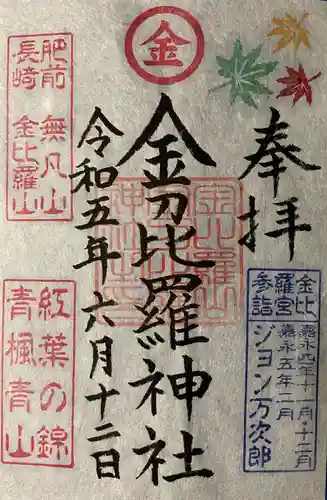 金
奉拝
金刀比羅神社
令和五年六月十二日
肥前 無凡山
長崎 金比羅山
紅葉の錦
青楓青山
金比羅宮参詣
嘉永四年十一月・十二月
嘉永五年二月
ジョン万次郎